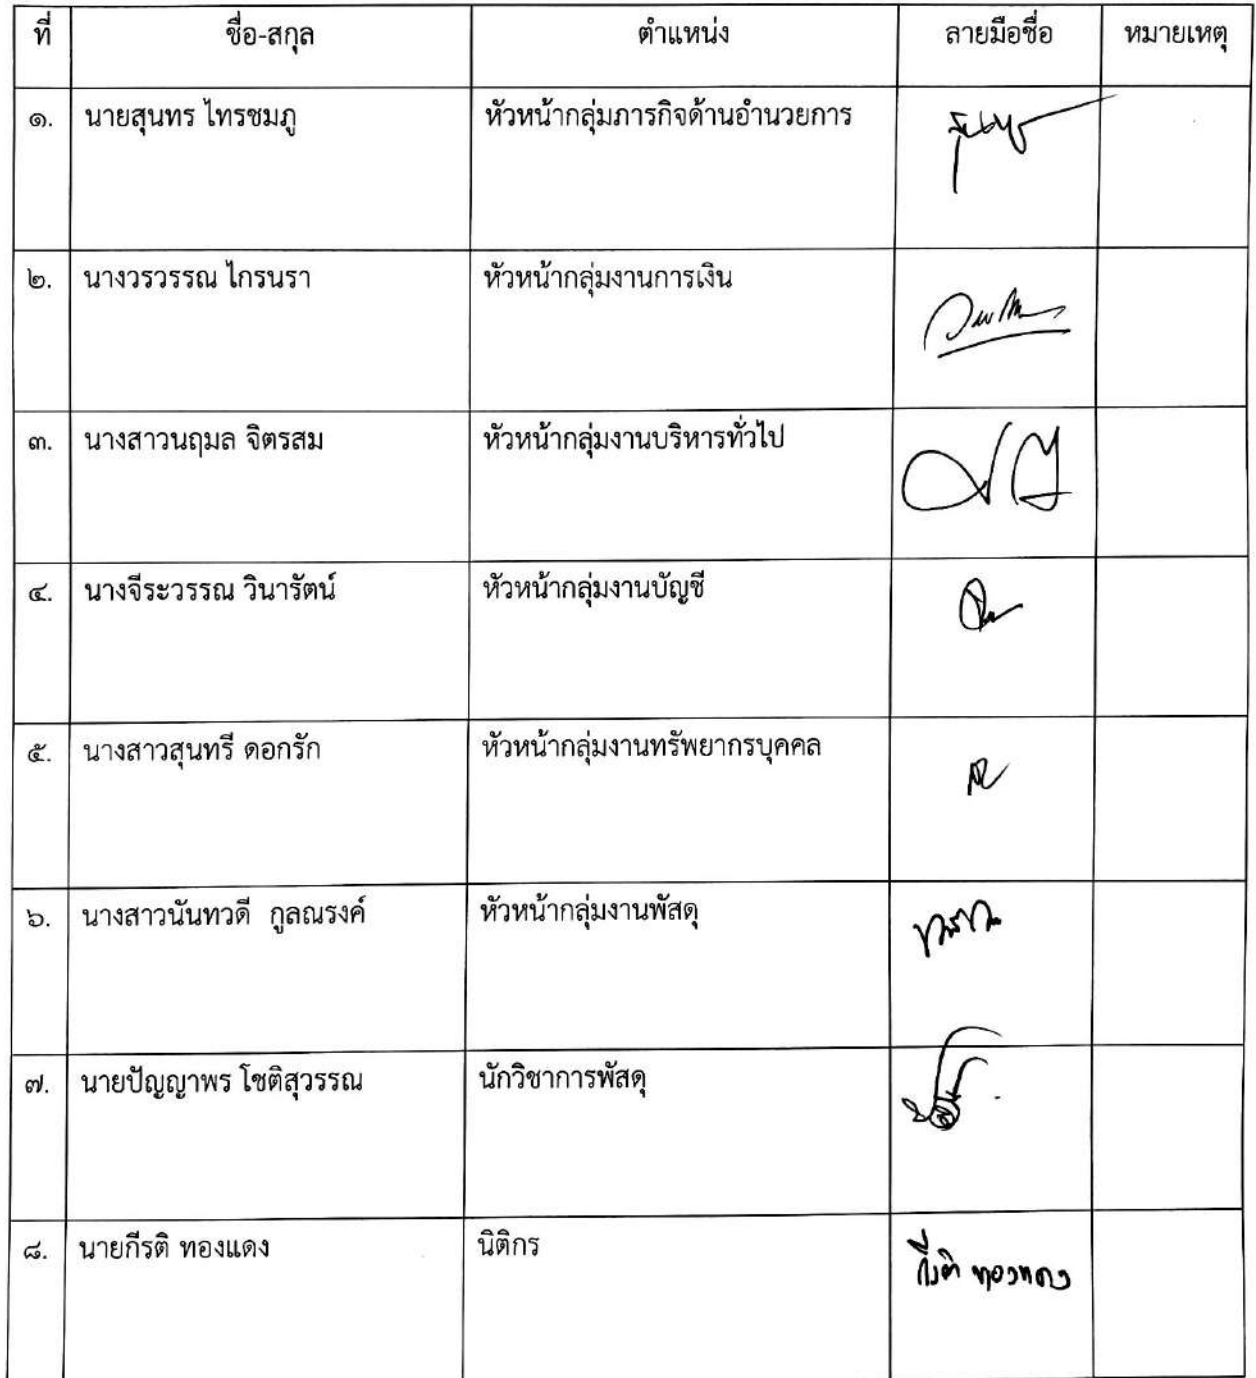 ที่ ชื่อ-สกุล ตำแหน่ง ลายมือชื่อ หมายเหตุ
๑. นายสุนทร ไทรชมภู หัวหน้ากลุ่มภารกิจด้านอำนวยการ
๒. นางวรวรรณ ไกรนรา หัวหน้ากลุ่มงานการเงิน
๓. นางสาวนฤมล จิตรสม หัวหน้ากลุ่มงานบริหารทั่วไป
๔. นางจีระวรรณ วินารัตน์ หัวหน้ากลุ่มงานบัญชี
๕. นางสาวสุนทรี ดอกรัก หัวหน้ากลุ่มงานทรัพยากรบุคคล
๖. นางสาวนันทวดี กูลณรงค์ หัวหน้ากลุ่มงานพัสดุ
๗. นายปัญญาพร โชติสุวรรณ นักวิชาการพัสดุ
๘. นายกีรติ ทองแดง นิติกร กีรติ ทองแดง